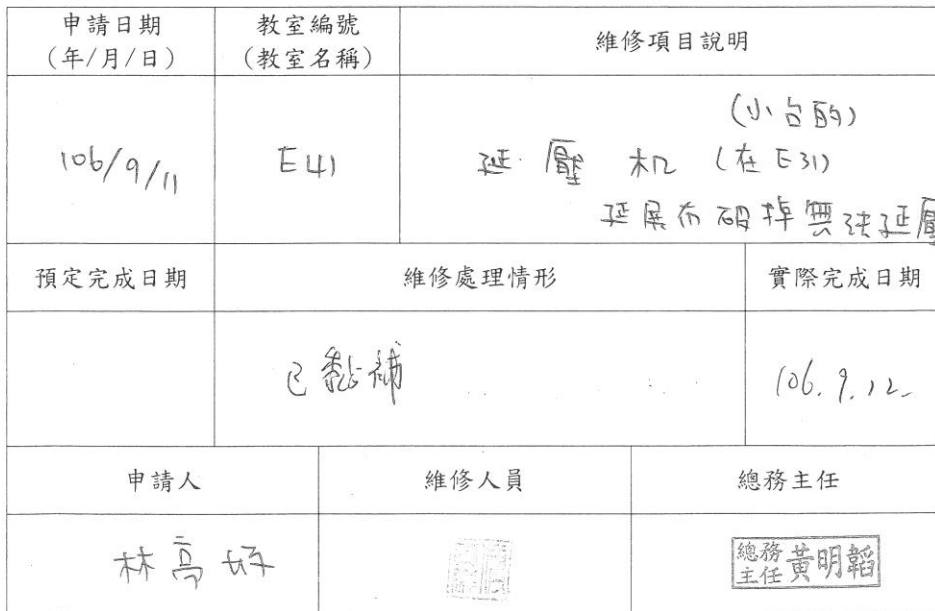 申請日期
(年/月/日)
教室編號
(教室名稱)
維修項目說明
106/9/11
E41
(小台的)
延壓 机 (在E31)
延展布破掉無法延壓
預定完成日期
維修處理情形
實際完成日期
已黏補
106.9.12.
申請人
維修人員
總務主任
林高
總務主任 黃明韜